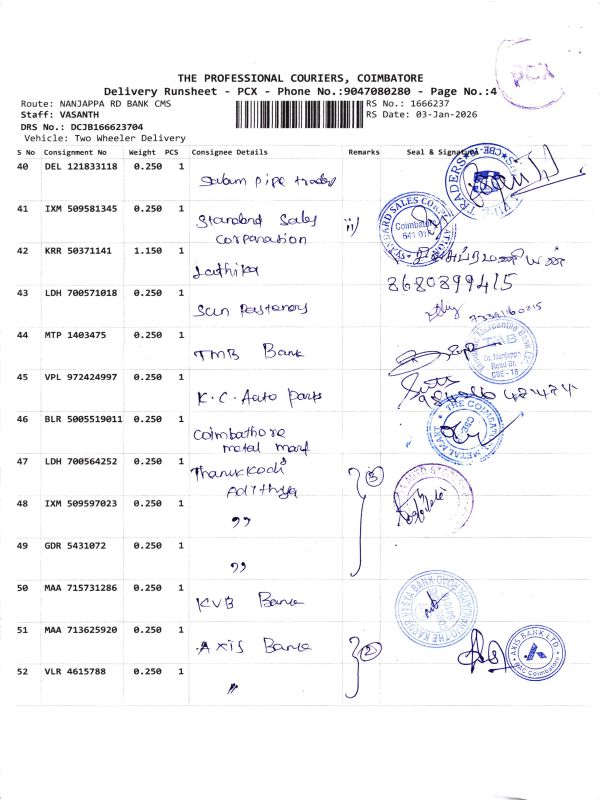 PCX
THE PROFESSIONAL COURIERS, COIMBATORE
Delivery Runsheet - PCX - Phone No.:9047080280 - Page No.:4
Route: NANJAPPA RD BANK CMS RS No.: 1666237
Staff: VASANTH RS Date: 03-Jan-2026
DRS No.: DCJB166623704
Vehicle: Two Wheeler Delivery
S No Consignment No Weight PCS Consignee Details Remarks Seal & Signature
40 DEL 121833118 0.250 1
Salam pipe traders TRADERS
41 IXM 509581345 0.250 1
Standard Sales Corporation STANDARD SALES CORPORATION Coimbatore
42 KRR 50371141 1.150 1
Lathika 8680899415
43 LDH 700571018 0.250 1
Sun Fasteners
44 MTP 1403475 0.250 1
TMB Bank TMB Dr. Nanjappa Road Br. CBE - 18
45 VPL 972424997 0.250 1
K.C. Auto Parts
46 BLR 5005519011 0.250 1
Coimbathore metal mart THE COIMBATORE METAL MART CBE
47 LDH 700564252 0.250 1
Adithya 3
48 IXM 509597023 0.250 1
"
49 GDR 5431072 0.250 1
"
50 MAA 715731286 0.250 1
KVB Bank
51 MAA 713625920 0.250 1
AXIS Bank 2 AXIS BANK LTD. Coimbatore
52 VLR 4615788 0.250 1
"